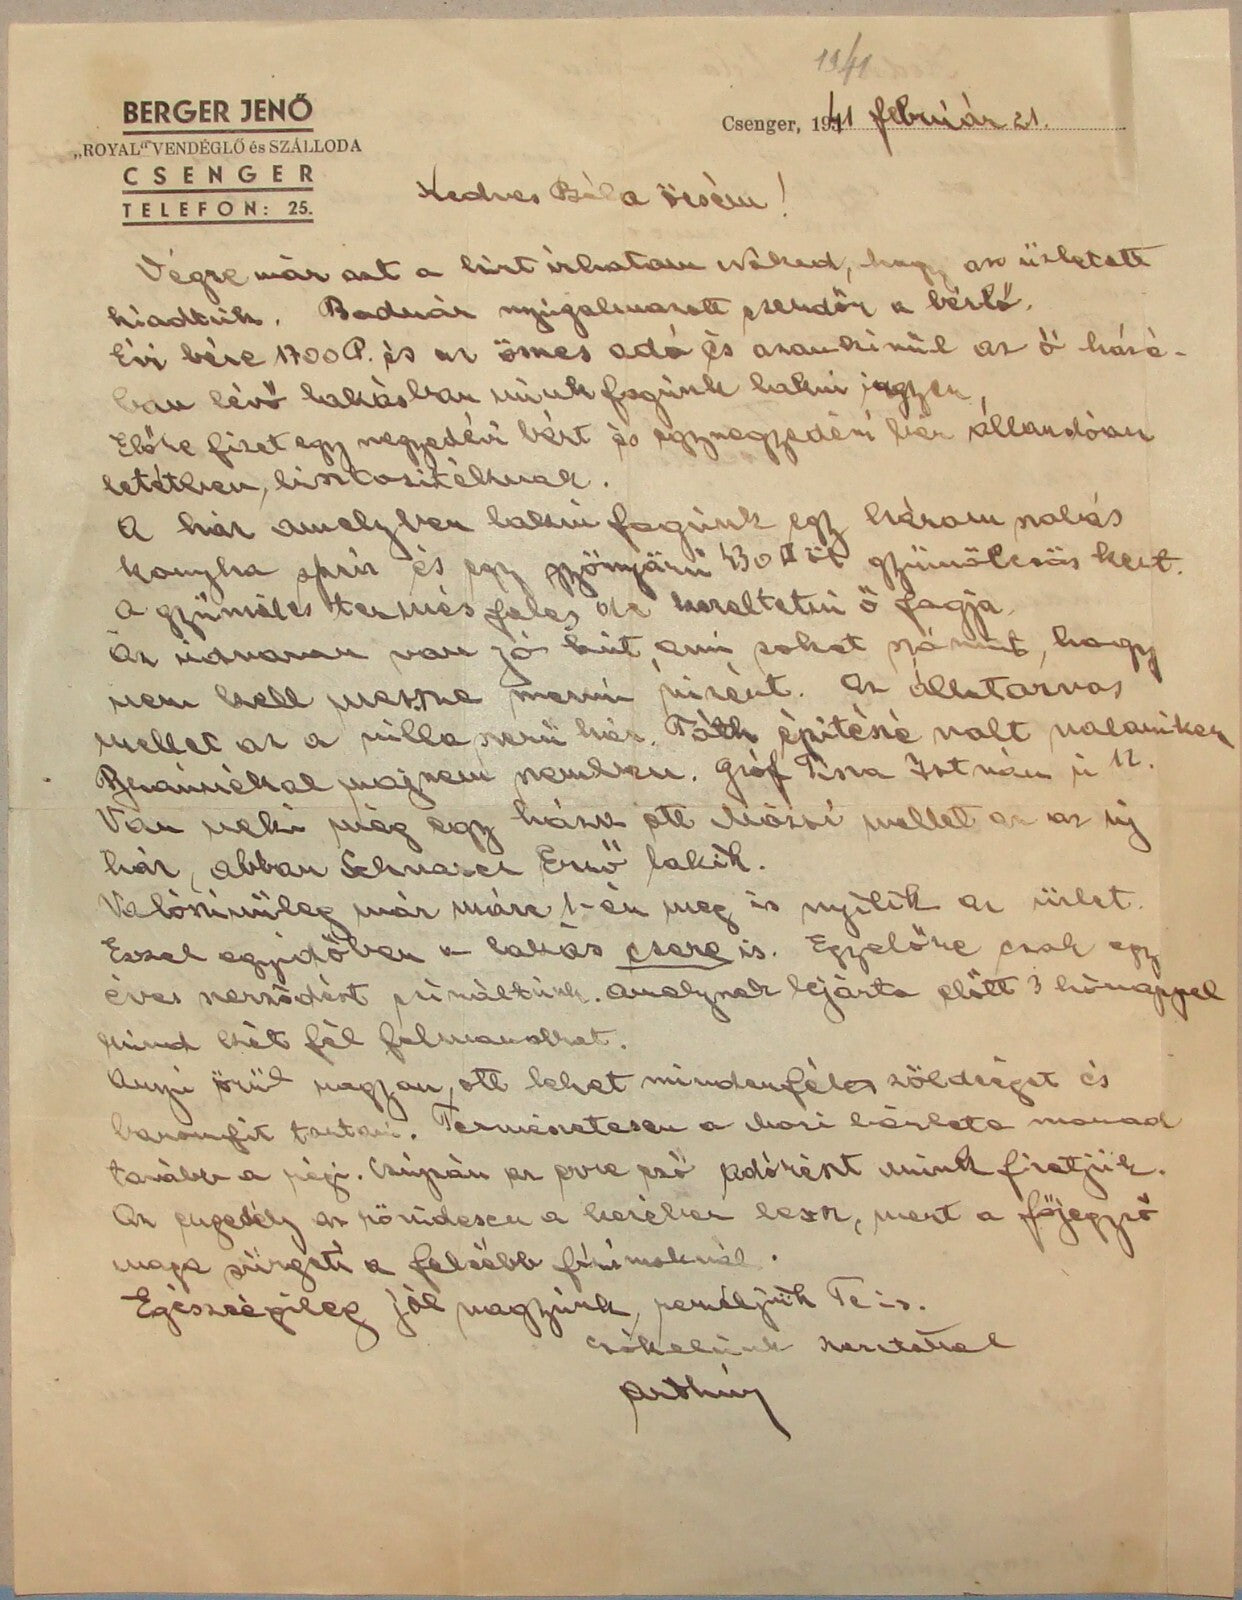 1941
BERGER JENŐ
„ROYAL" VENDÉGLŐ és SZÁLLODA
CSENGER
TELEFON: 25.
Csenger, 1941 február 21.
Kedves Béla öcsém!
Végre már azt a hírt írhatom Néked, hogy az üzletett
kiadtuk. Bodnár nyugalmazott csendőr a bérlő.
Évi bére 1700 P. és az összes adó és azonkívül az ő házá-
ban lévő lakásban mink fogunk lakni ingyen,
Előre fizet egy negyedévi bért és egynegyedévi bér állandóan
letétben, biztosítéknak.
A ház amelyben lakni fogunk egy három szobás
konyha speiz és egy gyönyörű 430 □ öl gyümölcsös kert.
A gyümölcs termés feles de kezeltetni ő fogja.
Az udvaron van jó kút, ami sokat számít, hogy
nem kell messze menni vízért. Az
mellet az a villa szerű ház. Tóth építésé volt valamikor
majnem szemben. Gróf Tisza István u 12.
Van neki még egy háza ott mellet az az új
ház, abban Ernő lakik.
Valószínűleg már márc 1-én meg is nyílik az üzlet.
Ezzel egyidőben a lakás csere is. Egyelőre csak egy
éves szerződést csináltunk. Amelynek lejárta előtt 3 hónappal
mind két fél felmondhat.
Anyu örül nagyon, ott lehet mindenféle zöldséget és
baromfit tartani. Természetesen a Mozi bérlete marad
tovább a régi. Csupán az erre eső adórészt mink fizetjük.
Az engedély az rövidesen a kezében lesz, mert a főjegyző
maga sürgeti a felsőbb fórumoknál.
Egészségileg jól vagyunk, reméljük Te is.
Csókolunk szeretettel